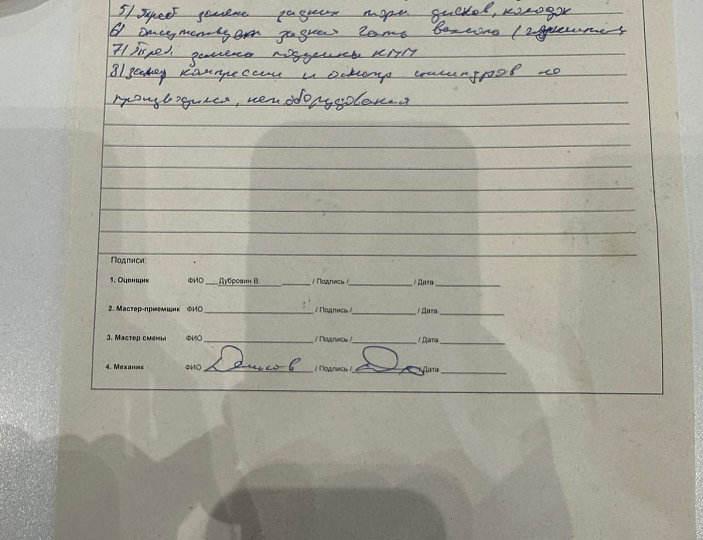 5) Треб замена задних торм дисков, колодок
6) Отсутствует задняя часть выхлопа (глушитель
7) Треб. замена подушки КПП
8) замер компрессии и осмотр цилиндров не
производился, нет оборудования
Подписи:
1. Оценщик ФИО Дубровин В. / Подпись / / Дата
2. Мастер-приемщик ФИО / Подпись / / Дата
3. Мастер смены ФИО / Подпись / / Дата
4. Механик ФИО Денисов / Подпись / / Дата